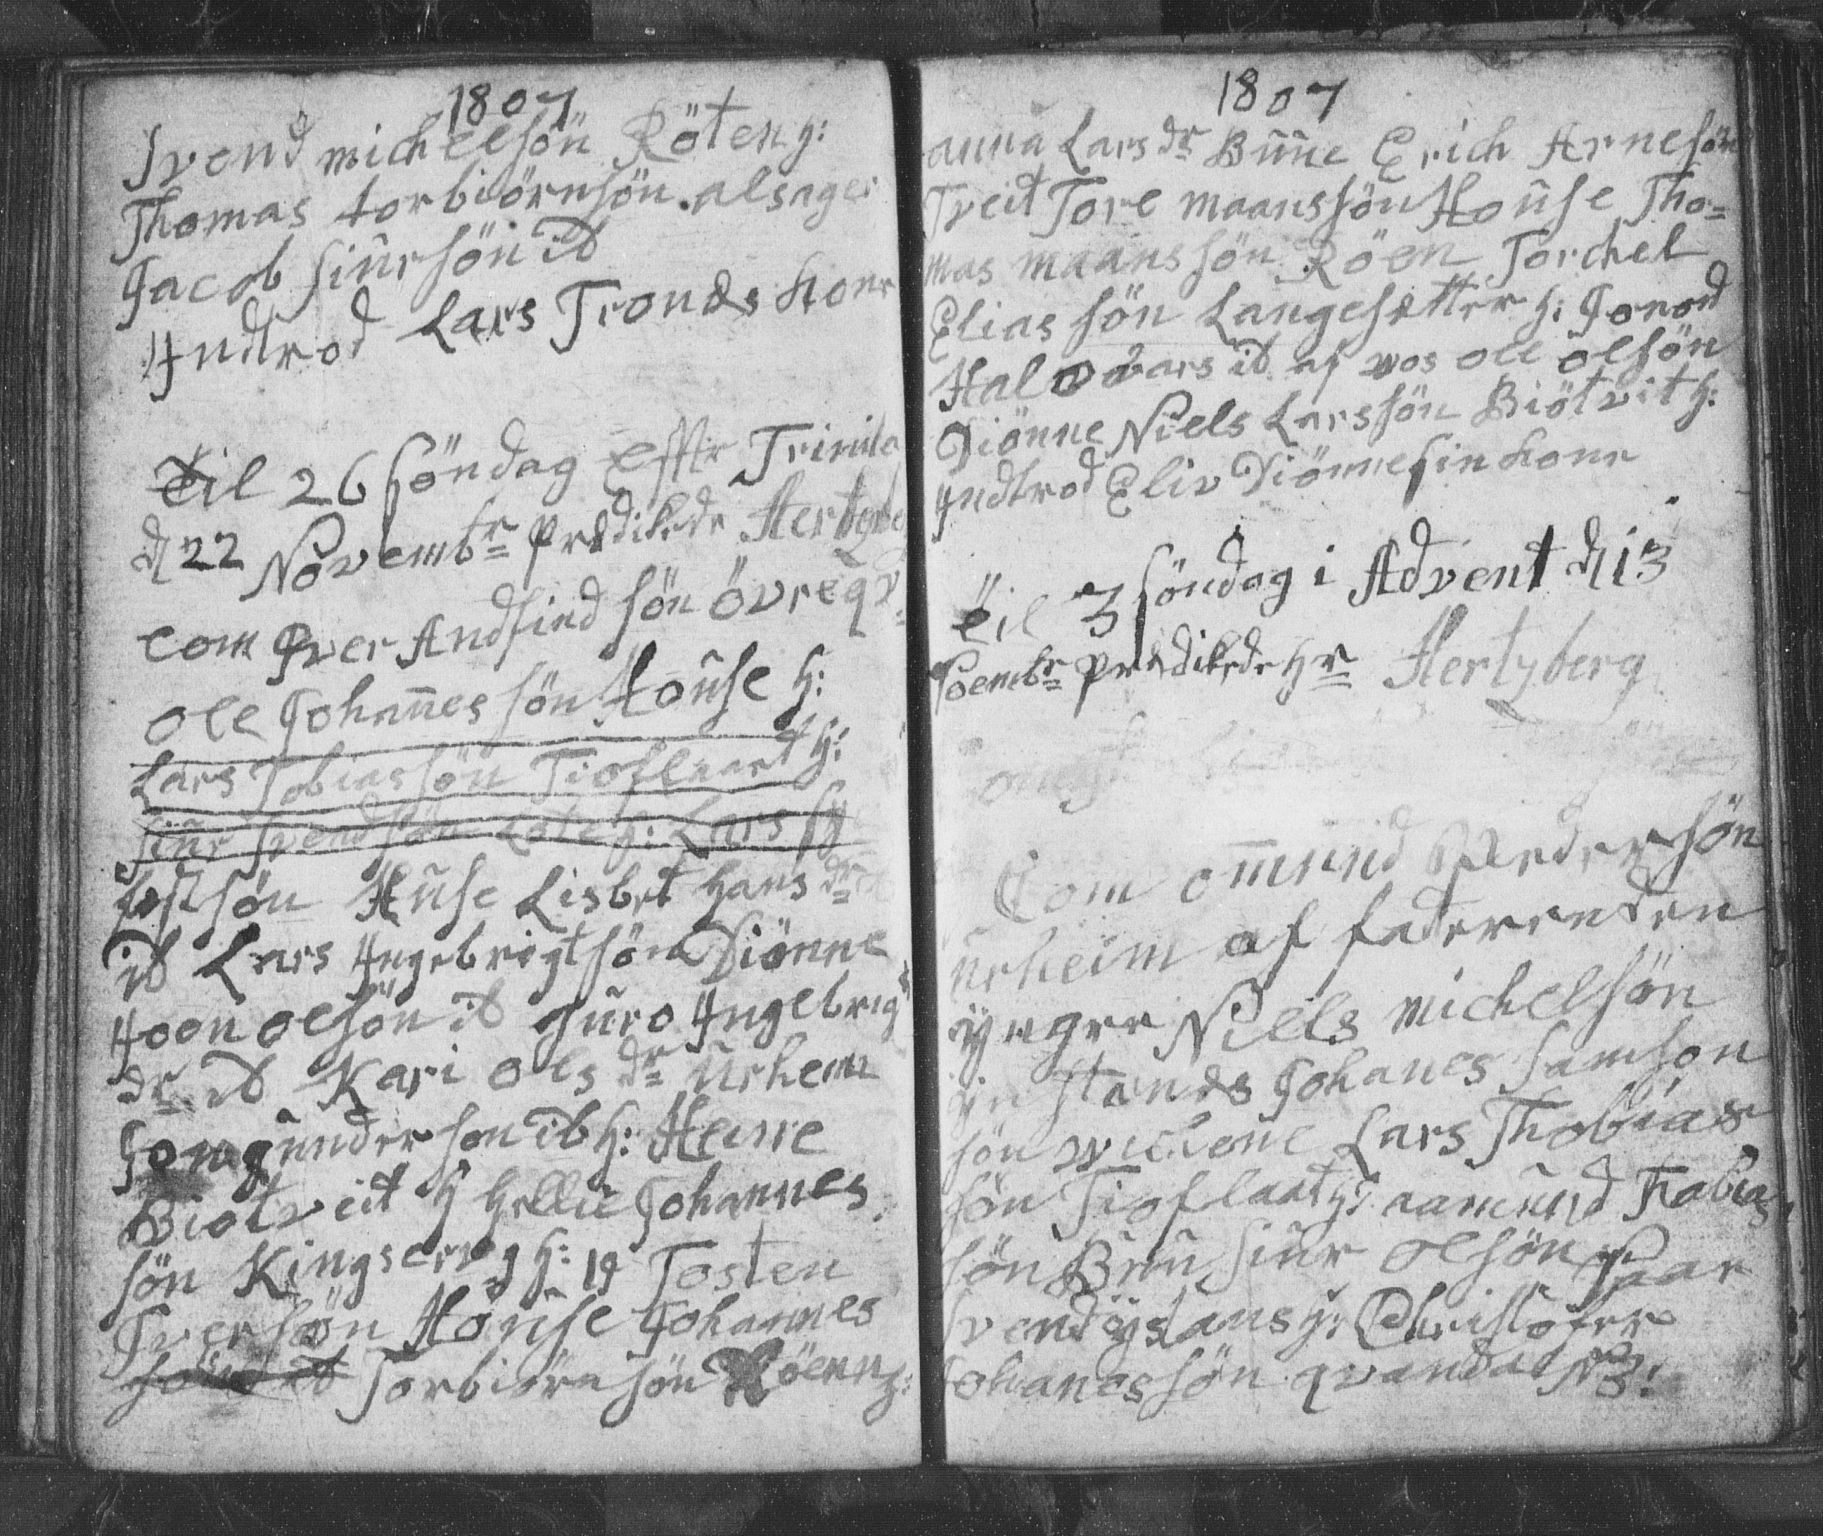 1807
Svend michelsön Röten h:
Thomas torbiörnsön alsager
Jacob siursön ib
Indtrod Lars Tronds kone
Til 26 söndag Efftr Trinita
d 22 Novembr predikede Hertzberg
com Iver Andfind sön övre qv
ole Johannes sön Houhse h:
Lars Tobiassön Tioflaat h:
siur svend sön Lote h: Lars sy
festsön Huse Lisbet hans dr
ib Lars Ingebrigtsön Diönne
Joon olsön ib Guro Ingebrigt
dr ib Kari ols dr urheim
Jon gunderson ib h: Heine
Biotveit h hellie Johannes
sön Kingservig h: 19 Tosten
Iversön Houhse Johannes
Torbiörnsön Röenn h:
1807
anna Lars dr Bûûe Erich Arnesön
Tveit Tore maanssön Houhse Tho=
mas maanssön Röen Torchel
Elias sön Langesetter h: Goron
Halovars ib af wos ole olsön
Diönne Niels Larssön Biötvit h:
Indtrod Eliv Diönne sin kone
Til 3 söndag i Advent d 13
Desembr predikede hr Hertzberg
Com omund Pedersön
urheim af faderenden
yngre Niels michelsön
ystands Johanes samson
sön wichone Lars Thobias
sön Tioflaat h: aamund Tobias
sön Bûû siur olsön Paar
svend ystans h: Christofer
Johanessön qvandal No 3: